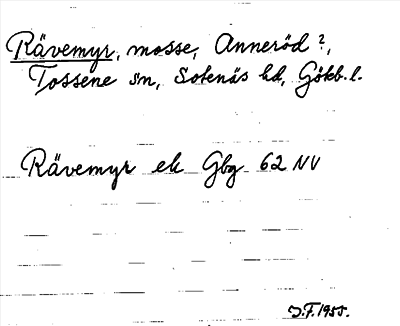 Rävemyr, mosse, Anneröd?,
Tossene sn, Sotenäs hd, Göteb. l.
Rävemyr ek Gbg 62 NV
J.F. 1955.